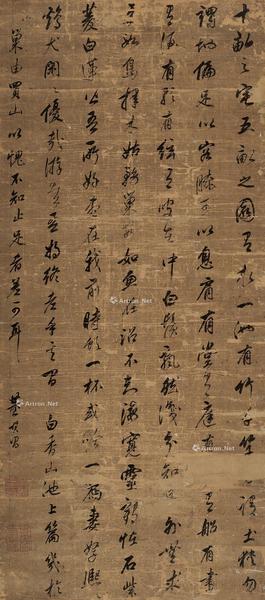 十畝之宅五畝之園有水一池有竹千竿勿謂土狹勿
謂地偏足以容膝足以息肩有堂有庭有船有書
有酒有歌有絃有叟在中白鬚飄然識分知足外無求
焉如鳥擇木姑務巢安如魚在沼不知海寬靈鶴怪石紫
菱白蓮皆吾所好盡在我前時飲一杯或吟一篇妻孥熙
雞犬閒優哉游哉吾將終老乎其間 白香山池上篇幾於
巢由買山以愧不知止足者 可耳 董其昌
Artron.Net
Artron.Net
Artron.Net
Artron.Net